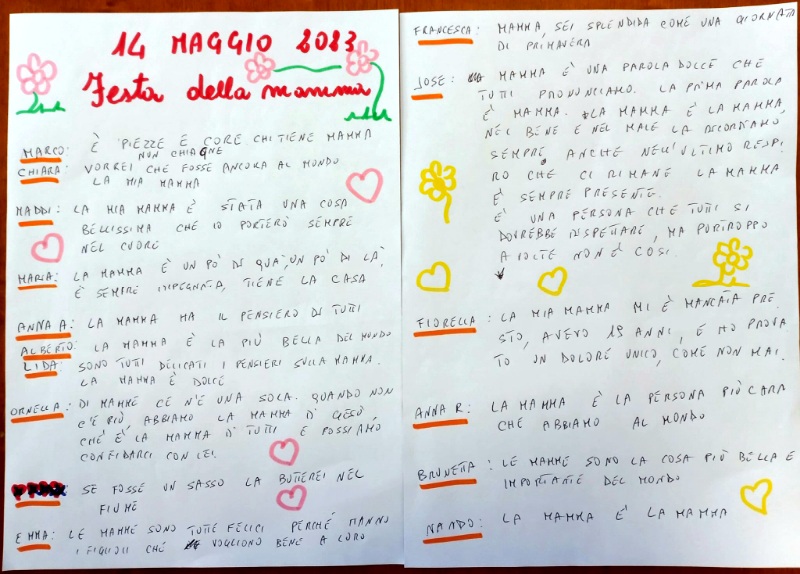 14 MAGGIO 2023
Festa della mamma
MARCO: È PIEZZE E CORE CHI TIENE MAMMA
NON CHIAGNE
CHIARA: VORREI CHE FOSSE ANCORA AL MONDO
LA MIA MAMMA
MADDI: LA MIA MAMMA È STATA UNA COSA
BELLISSIMA CHE IO PORTERÒ SEMPRE
NEL CUORE
MARIA: LA MAMMA È UN PÒ DI QUA', UN PÒ DI LÀ,
È SEMPRE IMPEGNATA, TIENE LA CASA
ANNA A: LA MAMMA HA IL PENSIERO DI TUTTI
ALBERTO: LA MAMMA È LA PIÙ BELLA DEL MONDO
LIDA: SONO TUTTI DELICATI I PENSIERI SULLA MAMMA.
LA MAMMA È DOLCE
ORNELLA: DI MAMME CE N'È UNA SOLA. QUANDO NON
C'È PIÙ, ABBIAMO LA MAMMA DI GESÙ
CHE È LA MAMMA DI TUTTI E POSSIAMO
CONFIDARCI CON LEI.
SE FOSSE UN SASSO LA BUTTEREI NEL
FIUME
EMMA: LE MAMME SONO TUTTE FELICI PERCHÉ HANNO
I FIGLIOLI CHE VOGLIONO BENE A LORO
FRANCESCA: MAMMA, SEI SPLENDIDA COME UNA GIORNATA
DI PRIMAVERA
JOSE: MAMMA È UNA PAROLA DOLCE CHE
TUTTI PRONUNCIAMO. LA PRIMA PAROLA
È MAMMA. LA MAMMA È LA MAMMA,
NEL BENE E NEL MALE LA RICORDIAMO
SEMPRE. ANCHE NELL'ULTIMO RESPI
RO CHE CI RIMANE LA MAMMA
È SEMPRE PRESENTE.
È UNA PERSONA CHE TUTTI SI
DOVREBBE RISPETTARE, MA PORTROPPO
A VOLTE NON È COSI.
FIORELLA: LA MIA MAMMA MI È MANCATA PRE
STO, AVEVO 19 ANNI, E HO PROVA
TO UN DOLORE UNICO, COME NON MAI.
ANNA R: LA MAMMA È LA PERSONA PIÙ CARA
CHE ABBIAMO AL MONDO
BRUNETTA: LE MAMME SONO LA COSA PIÙ BELLA E
IMPORTANTE DEL MONDO
NANDO: LA MAMMA È LA MAMMA